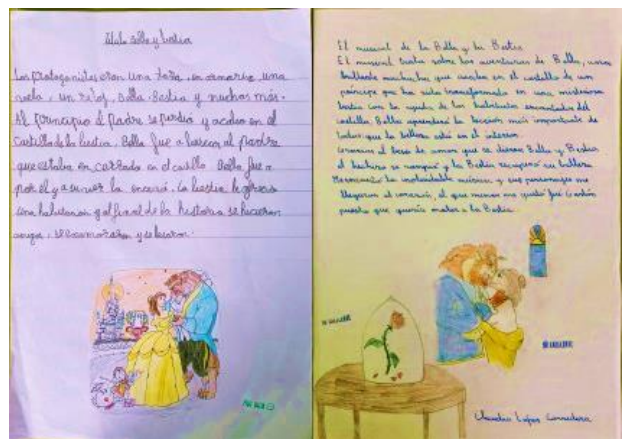 Título Bella y bestia
Los protagonistas eran una taza, un armario, una
vela, un reloj, Bella, Bestia y muchos más.
Al principio el Padre se perdió y acabó en el
Castillo de la bestia. Bella fue a buscar al padre
que estaba en cerrado en el castillo Bella fue a
por él y a su vez la encerró. La bestia le
una habitación y al final de la historia se hicieron
amigos, se enamoraron y se besaron.
El musical de la Bella y la Bestia
El musical trata sobre las aventuras de Bella, una
brillante muchacha que acaba en el castillo de un
príncipe que ha sido transformado en una misteriosa
bestia con la ayuda de los habitantes encantados del
castillo Bella aprenderá la lección más importante de
todas: que la belleza está en el interior.
el beso de amor que se dieron Bella y Bestia,
el hechizo se rompió y la Bestia recuperó su belleza.
la inolvidable música y sus personajes me
llegaron al corazón, el que menos me gustó fue Gastón
puesto que quería matar a la Bestia.
Claudia López